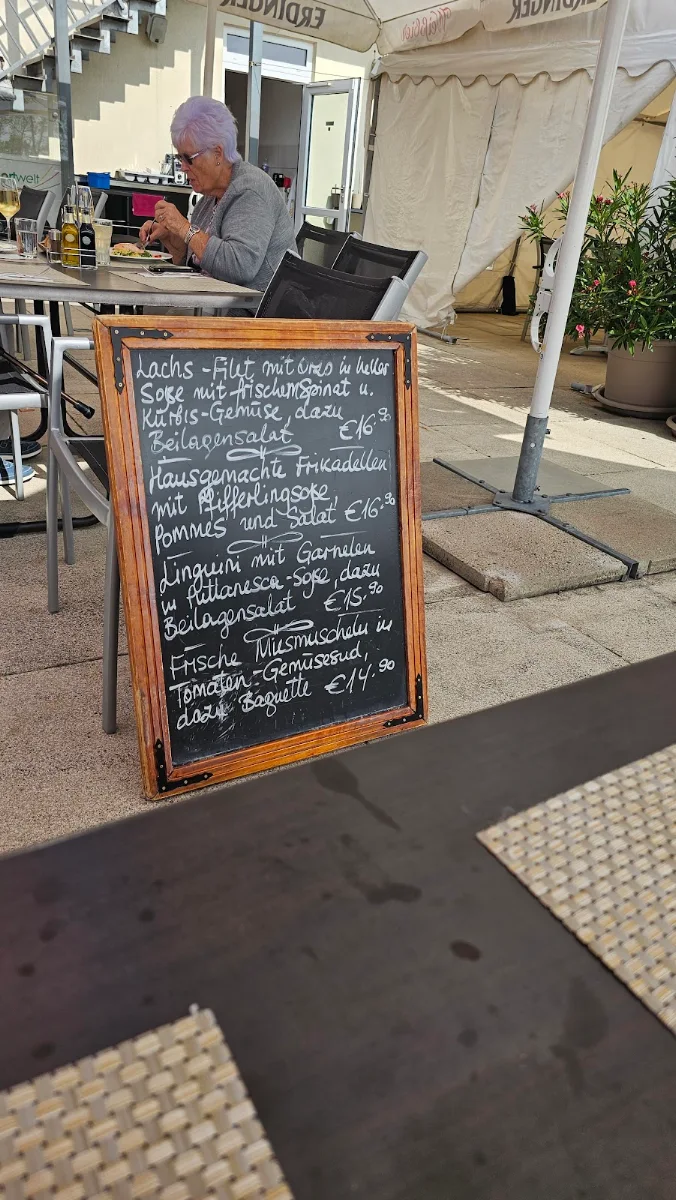 ERDINGER
ERDINGER
Lachs-Filet mit Orzo in heller
Soße mit frischem Spinat u.
Kürbis-Gemüse, dazu
Beilagensalat €16.90
Hausgemachte Frikadellen
mit Pfifferlingsoße,
Pommes und Salat €16.90
Linguini mit Garnelen
in Puttanesca-Soße, dazu
Beilagensalat €15.90
Frische Miesmuscheln in
Tomaten-Gemüsesud,
dazu Baguette €14.90